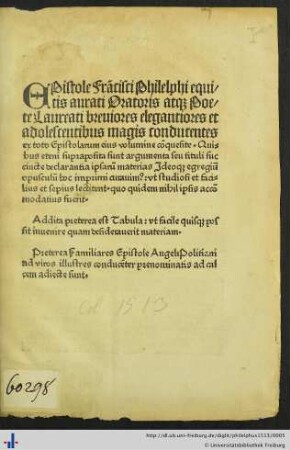 EPistole Frācisci Philelphi equi-
tis aurati Oratoris atqʒ Poe-
te Laureati breuiores elegantiores et
adolescentibus magis conducentes
ex toto Epistolarum eius volumine cōqueſite.
bus etenī supraposita sunt argumenta seu tituli suc
cincte declarantia ipsarū materias Ideoqʒ egregiū
opusculū hoc imprimi curauim⁹: vt studiosi et facil
lius et sepius lectitent. quo quidem nihil ipsis accō
modatius fuerit.
Addita preterea est Tabula: vt facile quisqʒ pos
sit inuenire quam desiderauerit materiam.
Preterea Familiares Epistole Angeli Politiani
ad viros illustres conducēter prenominatis ad cal
cem adiecte sunt.
1513
60298
http://dl.ub.uni-freiburg.de/diglit/philelphus1513/0005
© Universitätsbibliothek Freiburg